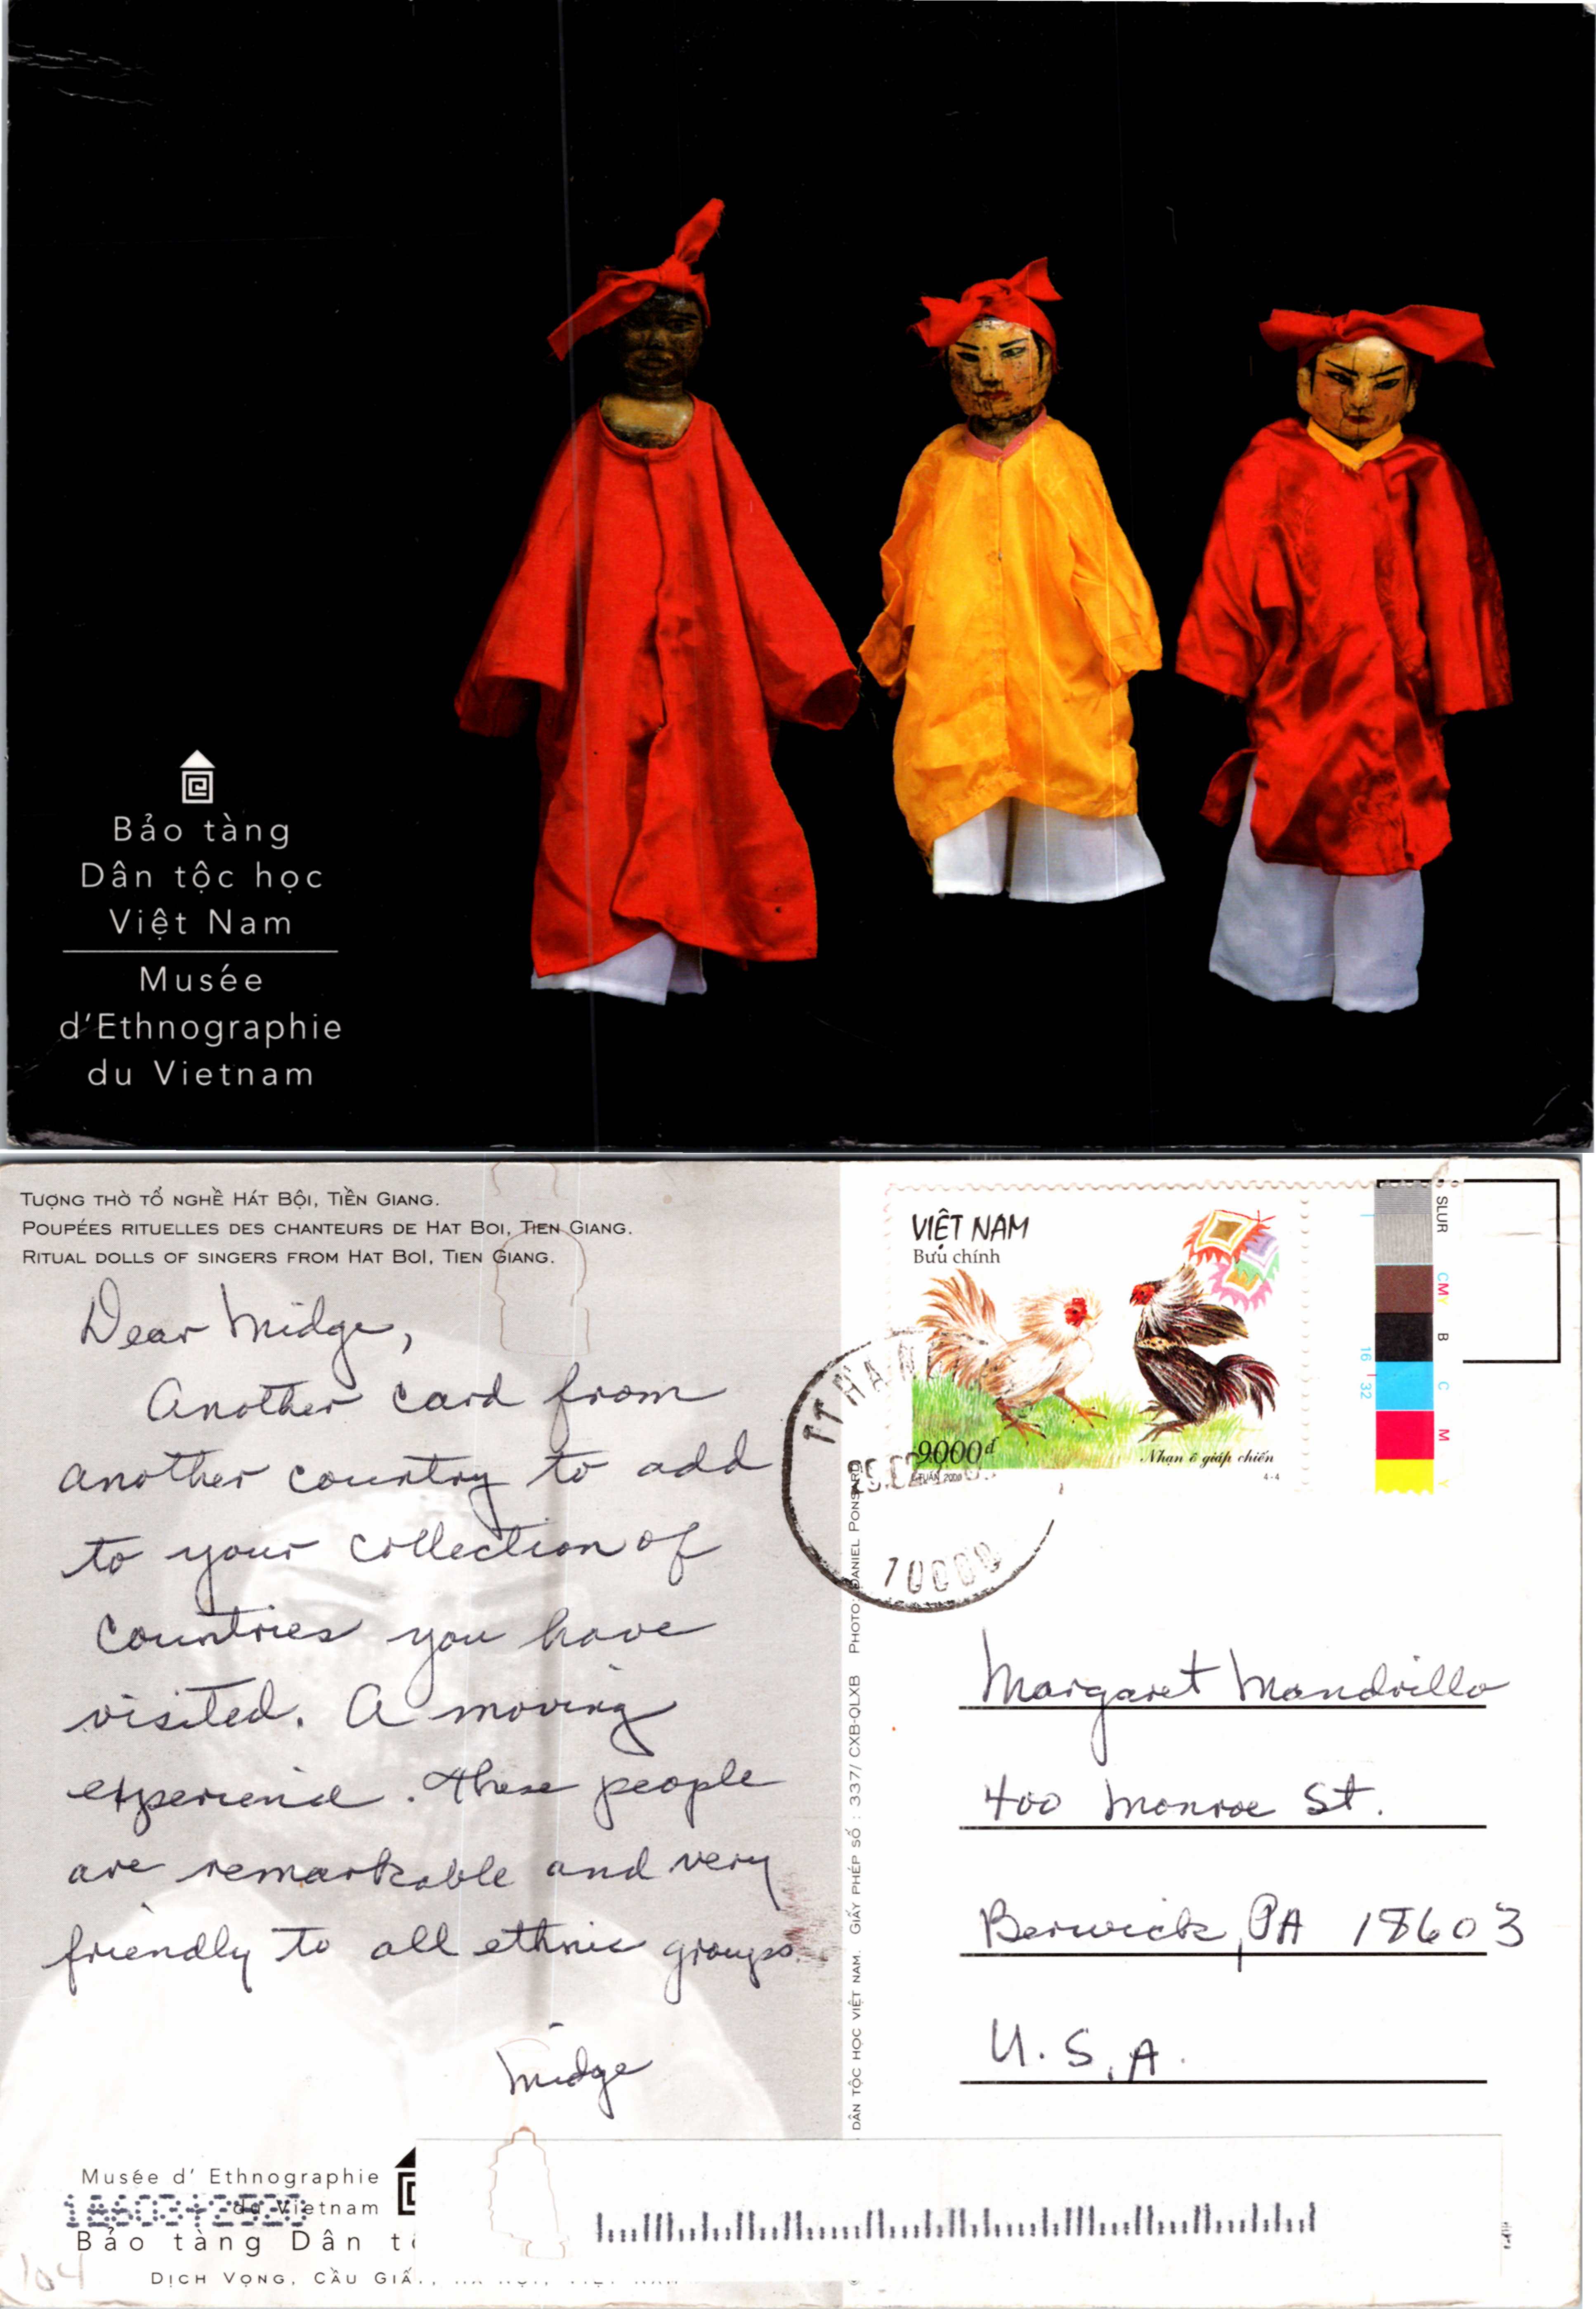 Bảo tàng
Dân tộc học
Việt Nam
Musée
d'Ethnographie
du Vietnam
Tượng thờ tổ nghề Hát Bội, Tiền Giang.
Poupées rituelles des chanteurs de Hat Boi, Tien Giang.
Ritual dolls of singers from Hat Boi, Tien Giang.
Dear Midge,
Another card from
another country to add
to your collection of
countries you have
visited. A moving
experience. These people
are remarkable and very
friendly to all ethnic groups
Midge
Musée d' Ethnographie
du Vietnam
18603+2520
Bảo tàng Dân
Dịch Vọng, Cầu
104
DÂN TỘC HỌC VIỆT NAM. GIẤY PHÉP SỐ : 337/ CXB-QLXB PHOTO: DANIEL PONSARD
VIỆT NAM
Bưu chính
9000đ
Nhạn ô giáp chiến
4-4
10000
SLUR
CMY
B
C
M
Y
16
32
Margaret Mandrillo
400 Monroe St.
Berwick, PA 18603
U.S.A.